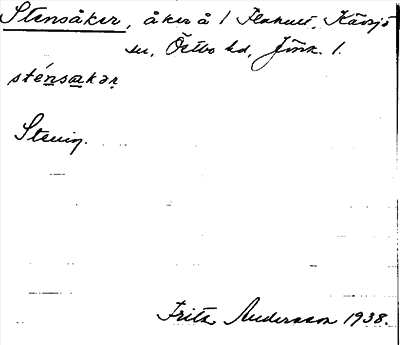 Stensåker, åker å 1 Flahult, Kävsjö
sn, Östbo hd, Jönk. l.
sténsakər
Stenig.
Fritz Andersson 1938.